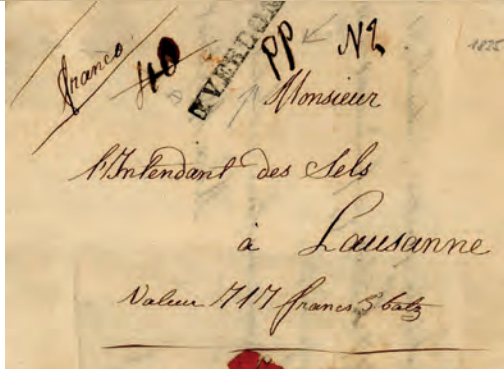 franco
YVERDON
PP
1825
Monsieur
l'Intendant des Sels
à Lausanne
Valeur 717 francs 5 batz